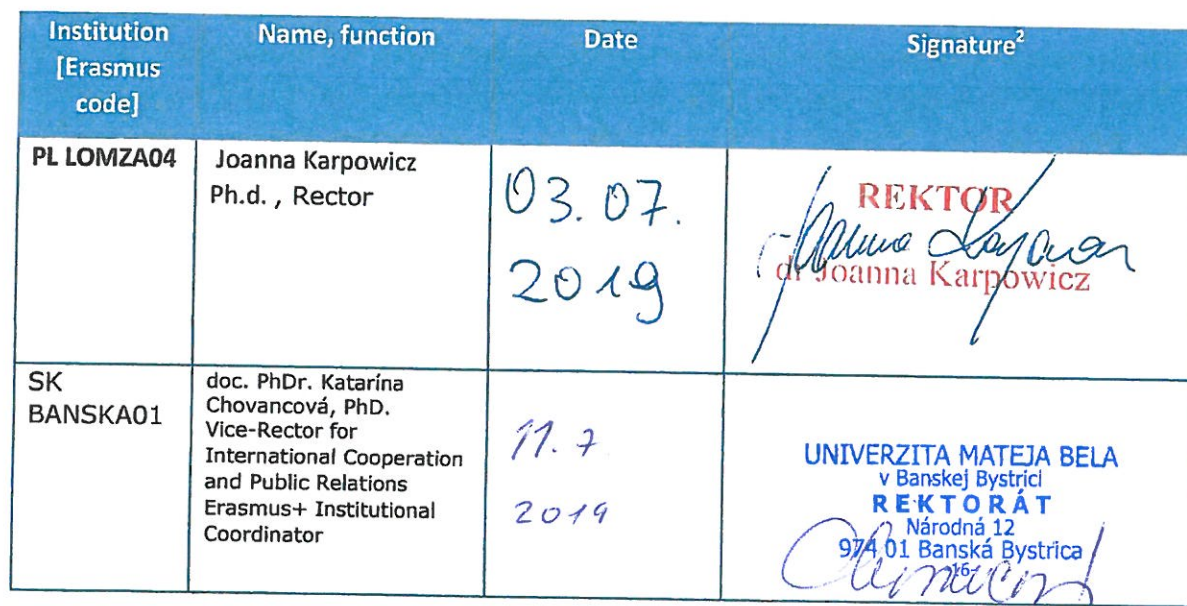 Institution
[Erasmus
code]
Name, function
Date
Signature²
PL LOMZA04
Joanna Karpowicz
Ph.d. , Rector
03.07.
2019
REKTOR
dr Joanna Karpowicz
SK
BANSKA01
doc. PhDr. Katarína
Chovancová, PhD.
Vice-Rector for
International Cooperation
and Public Relations
Erasmus+ Institutional
Coordinator
11.7.
2019
UNIVERZITA MATEJA BELA
v Banskej Bystrici
REKTORÁT
Národná 12
974 01 Banská Bystrica
-16-